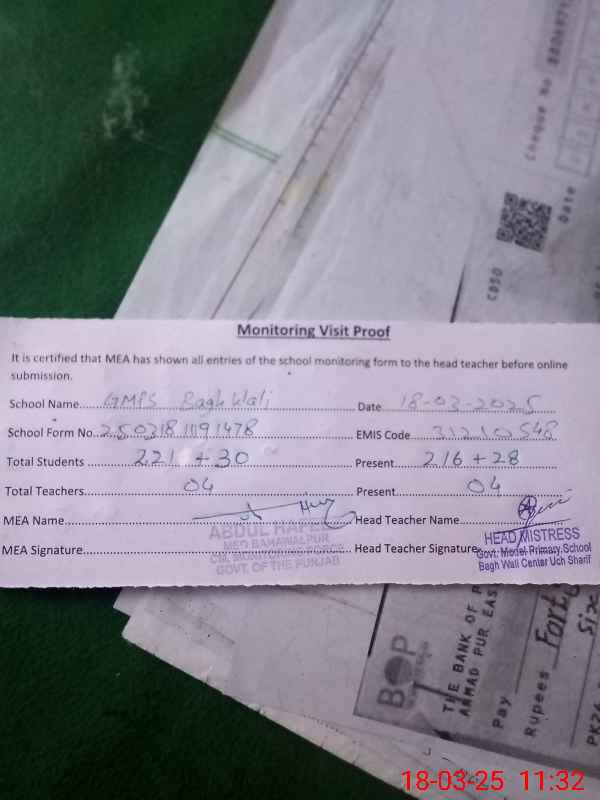 Cheque no
Date
CDSO
Monitoring Visit Proof
It is certified that MEA has shown all entries of the school monitoring form to the head teacher before online
submission.
School Name GMPS Bagh Wali Date 18-03-2025
School Form No. 2503181191478 EMIS Code 31210548
Total Students 221 + 30 Present 216 + 28
Total Teachers 04 Present 04
MEA Name Head Teacher Name
MEA Signature Head Teacher Signature
ABDUL HAFEE
MEO BAHAWALPUR
CM, MONITORING FORCE
GOVT. OF THE PUNJAB
HEAD MISTRESS
Govt. Model Primary School
Bagh Wali Center Uch Sharif
BOP
THE BANK OF P
AHMAD PUR EAS
Pay
Rupees Fort
Six
PK26
18-03-25 11:32